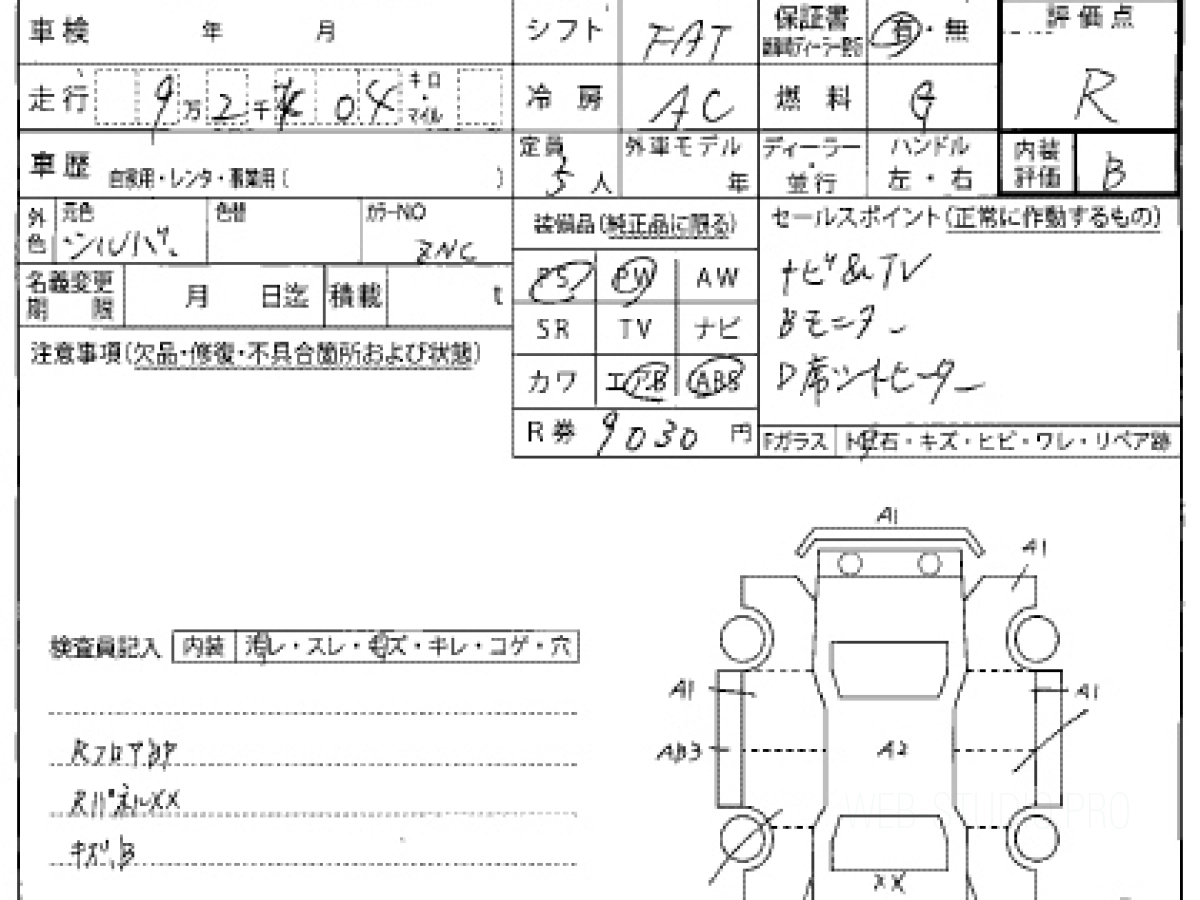 車検 年 月 シフト FAT 保証書 有・無 評価点
走行 9万2千 04 キロ・マイル 冷房 AC 燃料 G R
車歴 自家用・レンタ・事業用( ) 定員 5人 外車モデル 年 ディーラー・並行 ハンドル 左・右 内装評価 B
外色 元色 シルバー 色替 カラーNO ZNC 装備品(純正品に限る) セールスポイント(正常に作動するもの)
名義変更期限 月 日迄 積載 t PS PW AW ナビ&TV
SR TV ナビ Bモニター
注意事項(欠品・修復・不具合箇所および状態)
カワ エアB ABS D席シートヒーター
R券 9030円 Fガラス 飛石・キズ・ヒビ・ワレ・リペア跡
A1
A1
検査員記入 内装 汚レ・スレ・キズ・キレ・コゲ・穴
A1 A1
RフロアBP AB3 A2
RパネルXX
WEB STUDIO PRO
キズ、B
XX